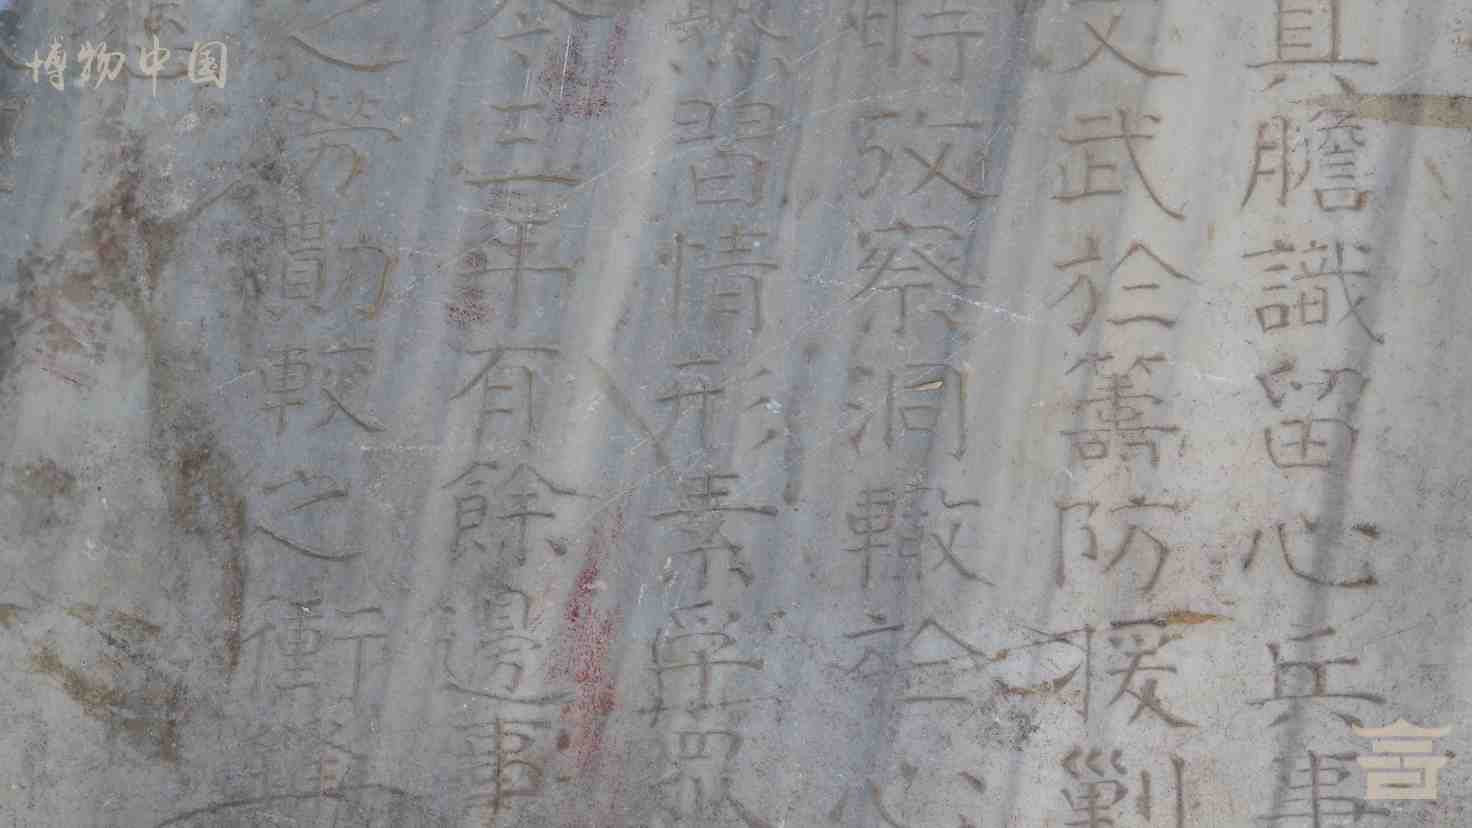 博物中国
具膽識留心兵事
文武於籌防援剿
時攷察洞轍於心
熟習情形素孚眾
今三年有餘邊事
之勞勩較之衝鋒